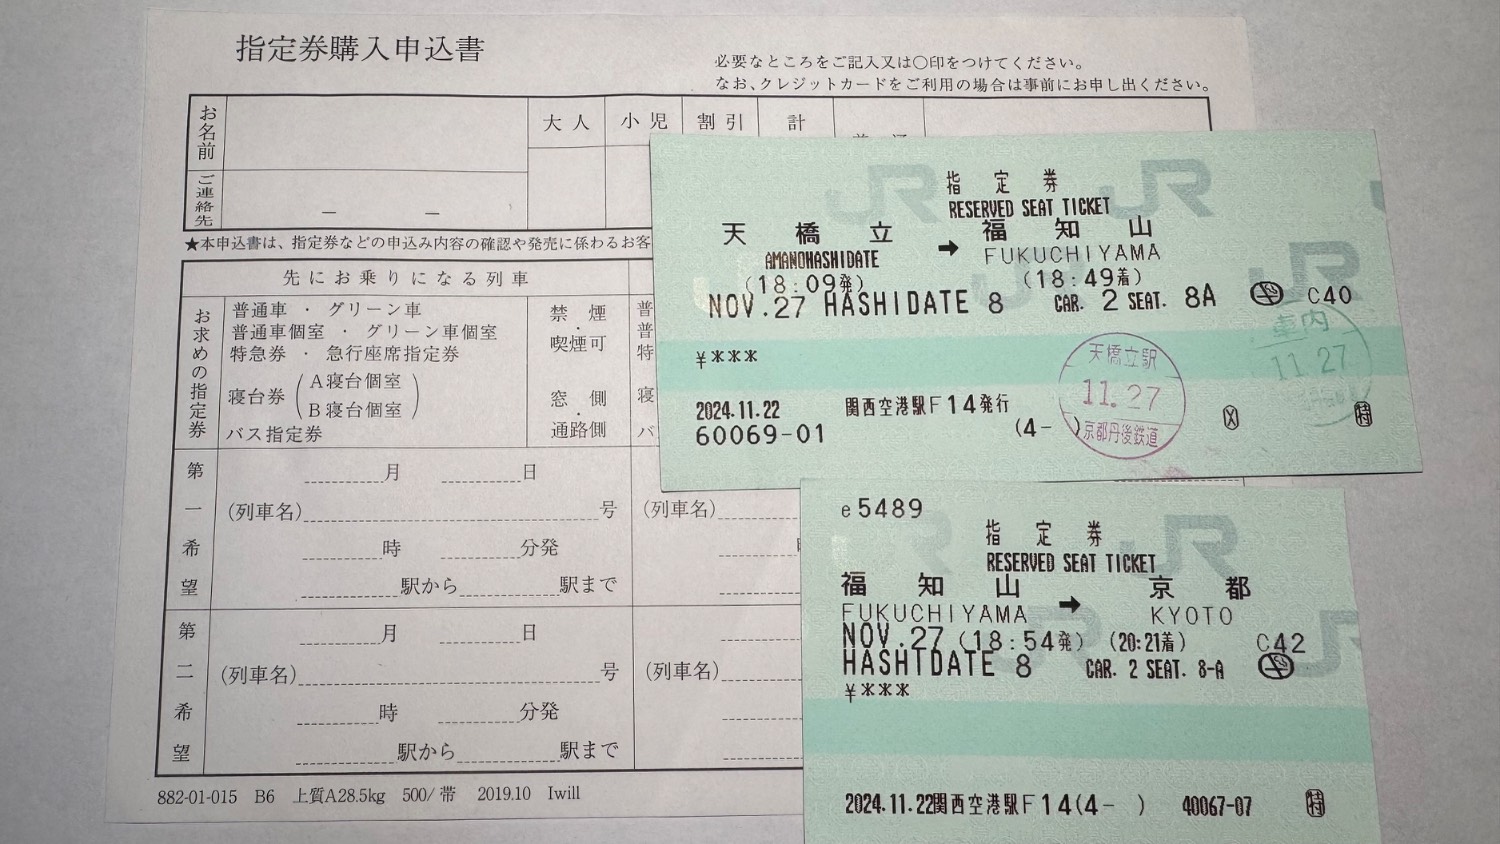 指定券購入申込書
必要なところをご記入又は○印をつけてください。
なお、クレジットカードをご利用の場合は事前にお申し出ください。
お名前
大人 小児 割引 計
ご連絡先
― ―
★本申込書は、指定券などの申込み内容の確認や発売に係わるお客
先にお乗りになる列車
お求めの指定券
普通車 ・ グリーン車
普通車個室 ・ グリーン車個室
特急券 ・ 急行座席指定券
寝台券(A寝台個室
B寝台個室)
バス指定券
禁煙
・
喫煙可
窓側
・
通路側
普
普
特
寝
バ
第一希望
月 日
(列車名) 号
時 分発
駅から 駅まで
(列車名)
第二希望
月 日
(列車名) 号
時 分発
駅から 駅まで
(列車名)
882-01-015 B6 上質A28.5kg 500/帯 2019.10 Iwill
JR JR JR
指定券
RESERVED SEAT TICKET
天橋立 → 福知山
AMANOHASHIDATE FUKUCHIYAMA
(18:09発) (18:49着)
NOV.27 HASHIDATE 8 CAR. 2 SEAT. 8A C40
¥***
2024.11.22 関西空港駅F14発行
60069-01 (4- )
天橋立駅
11.27
京都丹後鉄道
車内
11.27
特
e5489
JR
指定券
RESERVED SEAT TICKET
福知山 → 京都
FUKUCHIYAMA KYOTO
NOV.27 (18:54発) (20:21着) C42
HASHIDATE 8 CAR. 2 SEAT. 8-A
¥***
2024.11.22関西空港駅F14(4- ) 40067-07 特